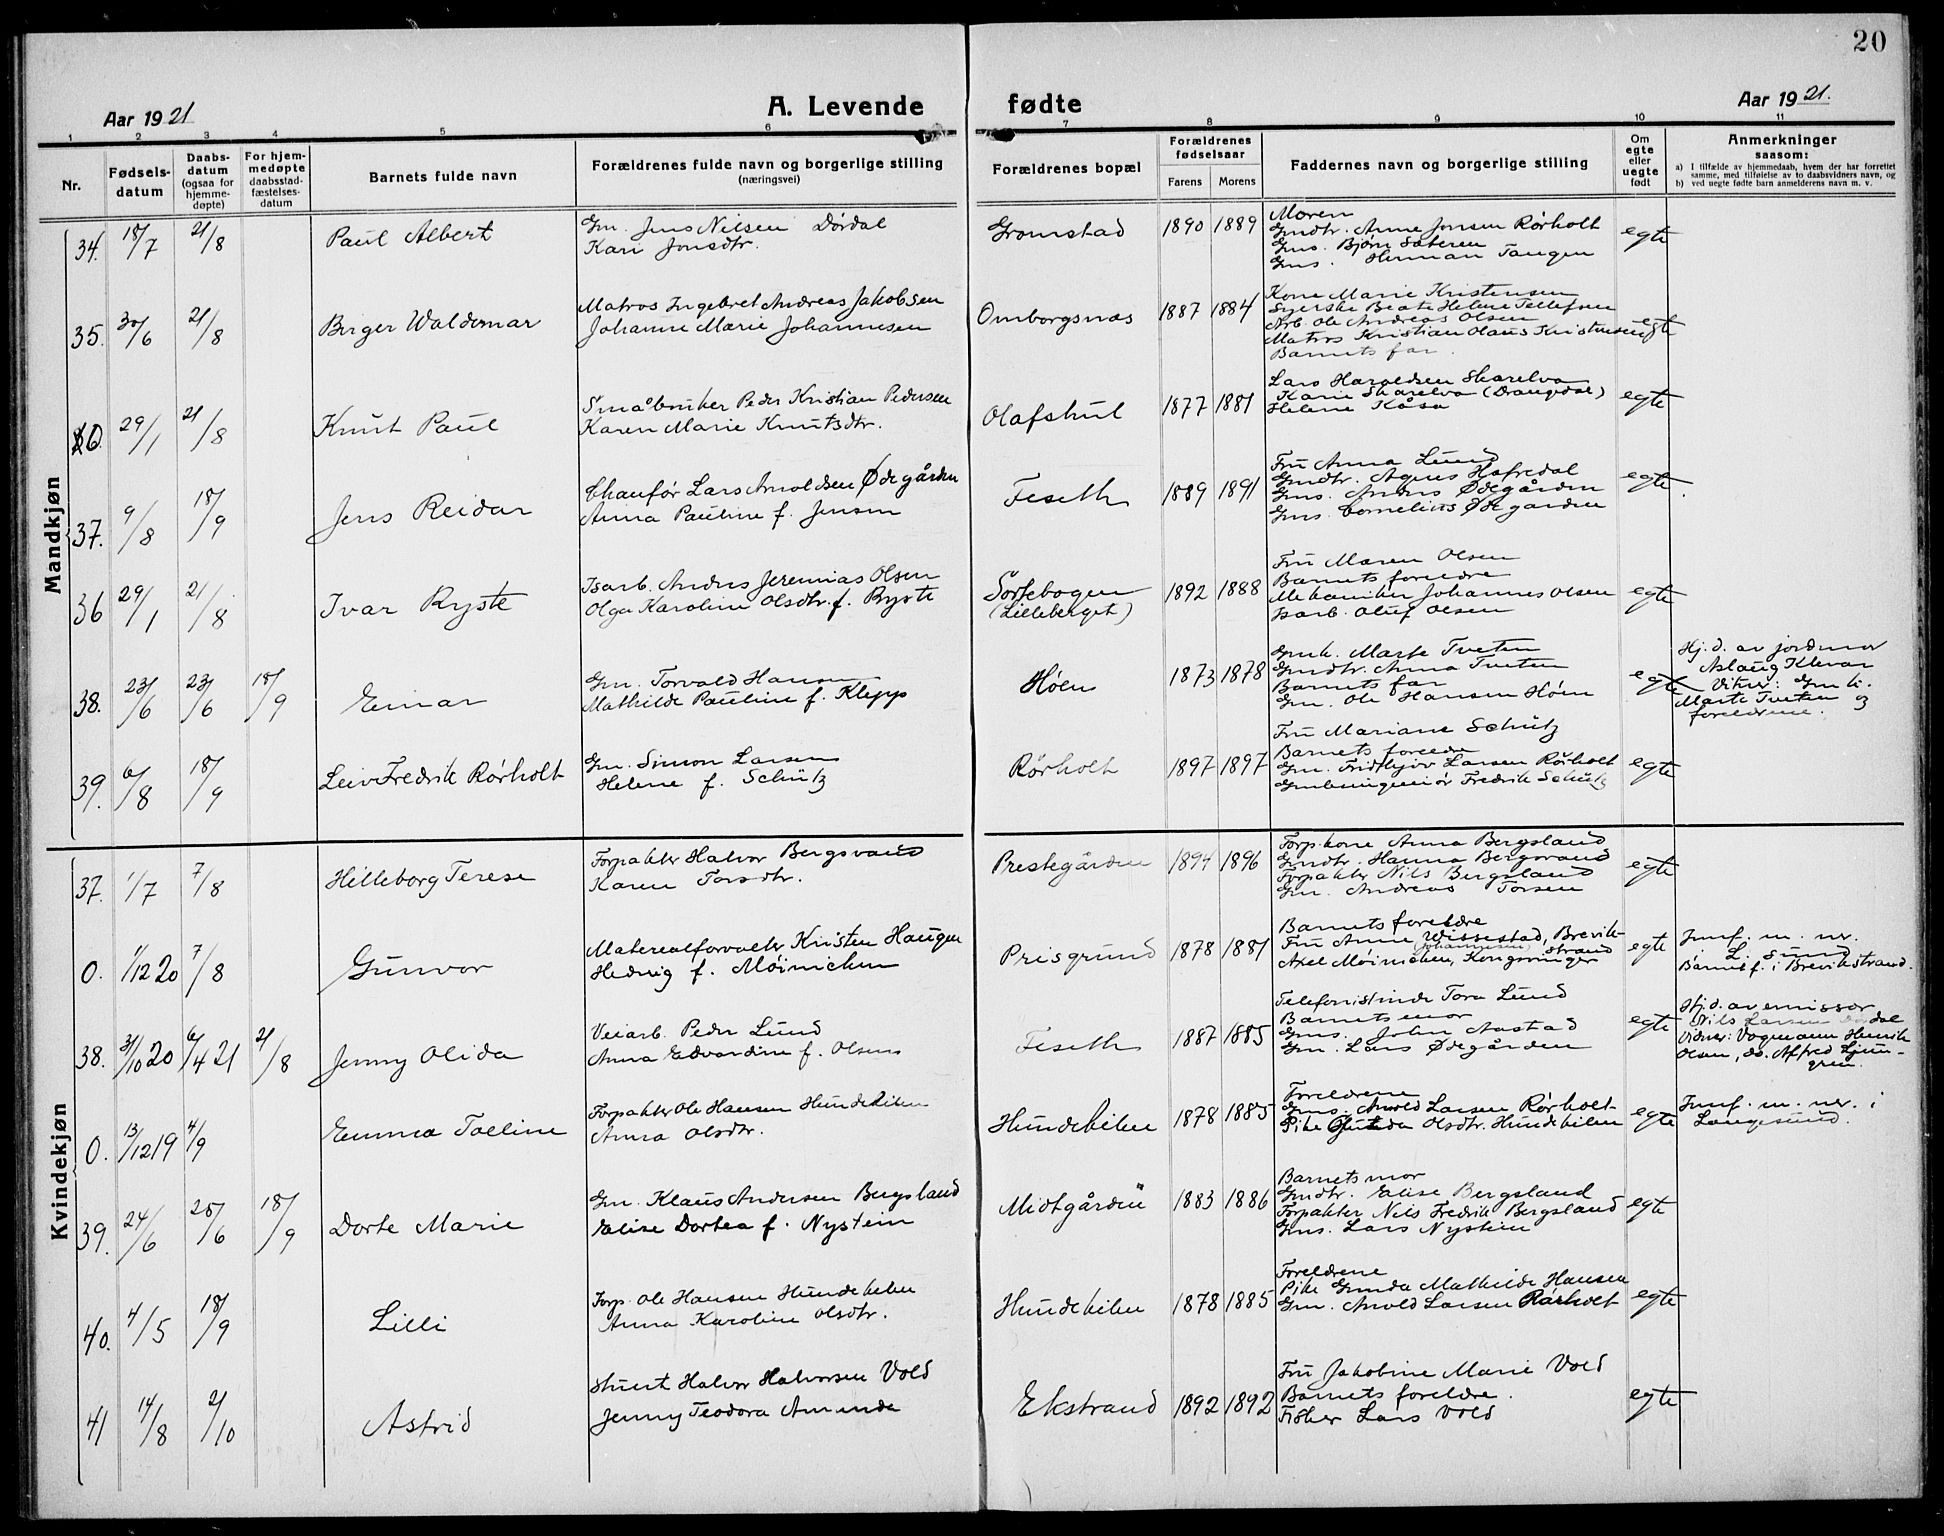 20
Aar 1921
A. Levende fødte
Aar 1921.
1 2 3 4 5 6 7 8 9 10 11
Nr.
Fødsels-
datum
Daabs-
datum
(ogsaa for
hjemme-
døpte)
For hjem-
medøpte
daabsstad-
fæstelses-
datum
Barnets fulde navn
Forældrenes fulde navn og borgerlige stilling
(næringsvei)
Forældrenes bopæl
Forældrenes
fødselsaar
Farens Morens
Faddernes navn og borgerlige stilling
Om
egte
eller
uegte
født
Anmerkninger
saasom:
a) I tilfælde av hjemmedaab, hvem der har forrettet
samme, med tilføielse av to daabsvidners navn, og
b) ved uegte fødte barn anmelderens navn m. v.
Mandkjøn
34. 18/7 21/8 Paul Albert
Gm. Jens Nilsen Dördal
Kari Jonsdtr.
Gromstad 1890 1889
Moren
Gmdtr. Anne Jonsen Rörholt
Gms. Bjørn Sæteren
Gms. Herman Tangen
egte
35. 30/6 21/8 Birger Waldemar
Matros Ingebret Andreas Jakobsen
Johanne Marie Johannesen
Omborgsnæs 1887 1884
Kone Marie Kristensen
Syerske Beate Helene Tellefsen
Arb. Ole Andreas Olsen
Matros Kristian Olaus Kristensen
Barnets far.
egte
0. 29/1 21/8 Knut Paul
Småbruker Peder Kristian Pedersen
Karen Marie Knutsdtr.
Olafshul 1877 1881
Lars Haroldsen Skarelva
Karie Skarelva (Drangedal)
Helene Kåsa
egte
37. 9/8 18/9 Jens Reidar
Chauför Lars Arnoldsen Ødegården
Anna Pauline f. Jensen
Feseth 1889 1891
Fru Anna Lund
Gmdtr. Agnes Hafredal
Gms. Anders Ødegården
Gms. Cornelius Ødegården
egte.
36 29/1 21/8 Ivar Ryste
Isarb. Anders Jeremias Olsen
Olga Karoline Olsdtr. f. Ryste
Sørtebogen
(Lilleberget)
1892 1888
Fru Maren Olsen
Barnets foreldre
Mekaniker Johannes Olsen
Isarb. Oluf Olsen
egte
38. 23/6 23/6 18/9 Einar
Gm. Torvald Hansen
Mathilde Pauline f. Klepp
Höen 1873 1878
Gmk. Marte Tveten
Gmdtr. Anna Tveten
Barnets far
Gm. Ole Hansen Höen
egte
Hj. d. av jordmor
Aslaug Klevar
Vitner: Gmk.
Marte Tveten og
foreldrene.
39. 6/8 18/9 Leiv Fredrik Rörholt
Gm. Simon Larsen
Helene f. Schütz
Rörholt 1897 1897
Fru Mariane Schütz
Barnets foreldre
Gm. Fridthjov Larsen Rörholt
Grubeingeniör Fredrik Schütz
egte
Kvindekjøn
37. 1/7 7/8 Hilleborg Terese
Forpakter Halvor Bergsvand
Karen Torsdtr.
Prestegården 1894 1896
Forp. kone Anna Bergsland
Gmdtr. Hanna Bergsvand
Forpakter Nils Bergsland
Gm. Andreas Torsen
egte
0. 1/12 20 7/8 Gunvor
Materealforvalter Kristen Haugen
Hedvig f. Möinichen
Prisgrund 1878 1881
Barnets foreldre
Fru Anna Wissestad, Brevik-
(Johannesen) strand
Axel Möinichen, Kongsvinger
egte
Innf. m. nr.
L. Sund
Barnet f. i Brevikstrand.
38. 31/10 20 6/4 21 21/8 Jenny Olida
Veiarb. Peder Lund
Anna Edvardine f. Olsen
Feseth 1887 1885
Telefonistinde Tora Lund
Barnets mor
Gms. John Aastad
Gm. Lars Ødegården
egte
Hj. d. av emissær
Nils Larsen Dördal
Vidner: Vognmann Henrik
Olsen, do. Alfred Ljun-
gren.
0. 13/12 19 4/9 Emma Tolline
Forpakter Ole Hansen Hundekilen
Anna Olsdtr.
Hundekilen 1878 1885
Foreldrene
Gms. Arvold Larsen Rörholt
Pike Gunda Olsdtr. Hundekilen
egte
Innf. m. nr. i
Langesund.
39. 24/6 25/6 18/9 Dorte Marie
Gm. Klaus Andersen Bergsland
Elise Dortea f. Nystein
Midtgården 1883 1886
Barnets mor
Gmdtr. Elise Bergsland
Forpakter Nils Fredrik Bergsland
Gms. Lars Nystein
egte
40. 4/5 18/9 Lilli
Forp. Ole Hansen Hundekilen
Anna Karoline Olsdtr.
Hundekilen 1878 1885
Foreldrene
Pike Gunda Mathilde Hansen
Gm. Arvold Larsen Rörholt
egte
41 14/8 2/10 Astrid
Stuert Halvor Halvorsen Vold
Jenny Teodora Amunda
Ekstrand 1892 1892
Fru Jakobine Marie Vold
Barnets foreldre.
Fisker Lars Vold
egte